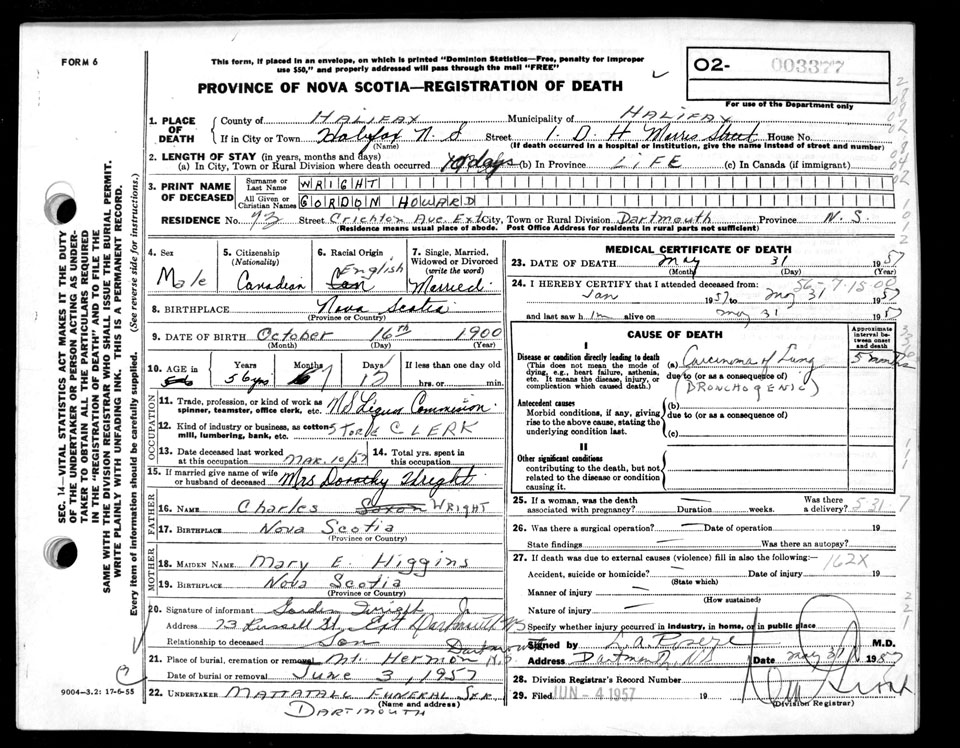 FORM 6
This form, if placed in an envelope, on which is printed "Dominion Statistics—Free, penalty for improper
use $50," and properly addressed will pass through the mail "FREE"
PROVINCE OF NOVA SCOTIA—REGISTRATION OF DEATH
02- 003377
For use of the Department only
1. PLACE OF DEATH County of HALIFAX Municipality of HALIFAX
If in City or Town Halifax N. S Street I. D. H Morris Street House No.
(Name) (If death occurred in a hospital or institution, give the name instead of street and number)
2. LENGTH OF STAY (in years, months and days)
(a) In City, Town or Rural Division where death occurred days (b) In Province LIFE (c) In Canada (if immigrant)
3. PRINT NAME OF DECEASED Surname or Last Name WRIGHT
All Given or Christian Names GORDON HOWARD
RESIDENCE No. 73 Street Crichton Ave. Ext City, Town or Rural Division Dartmouth Province N. S.
(Residence means usual place of abode. Post Office Address for residents in rural parts not sufficient)
4. Sex Male
5. Citizenship (Nationality) Canadian
6. Racial Origin English Can
7. Single, Married, Widowed or Divorced (write the word) Married
8. BIRTHPLACE Nova Scotia
(Province or Country)
9. DATE OF BIRTH October 16th 1900
(Month) (Day) (Year)
10. AGE in 56 Years 56 yrs Months 7 Days If less than one day old
hrs. or min.
OCCUPATION
11. Trade, profession, or kind of work as
spinner, teamster, office clerk, etc. NS Liquor Commission
12. Kind of industry or business, as cotton
mill, lumbering, bank, etc. Store CLERK
13. Date deceased last worked
at this occupation MAR. 10/57
14. Total yrs. spent in
this occupation
15. If married give name of wife
or husband of deceased Mrs Dorothy Wright
FATHER
16. NAME Charles Saxon WRIGHT
17. BIRTHPLACE Nova Scotia
(Province or Country)
MOTHER
18. MAIDEN NAME Mary E. Higgins
19. BIRTHPLACE Nova Scotia
(Province or Country)
20. Signature of informant Gordon Wright Jr
Address 73 Russell St. Ext Dartmouth NS
Relationship to deceased Son
21. Place of burial, cremation or removal Mt. Hermon Dartmouth N.S.
Date of burial or removal June 3, 1957
22. UNDERTAKER MATTATALL FUNERAL SER
(Name and Address)
DARTMOUTH
MEDICAL CERTIFICATE OF DEATH
23. DATE OF DEATH May 31 1957
(Month) (Day) (Year)
56-7-15-00
24. I HEREBY CERTIFY that I attended deceased from:
Jan 1957 to May 31 1957
and last saw him alive on May 31 1957
CAUSE OF DEATH
Approximate interval between onset and death
I
Disease or condition directly leading to death
(This does not mean the mode of
dying, e.g., heart failure, asthenia,
etc. It means the disease, injury, or
complication which caused death.)
(a) Carcinoma of Lung 5 months
due to (or as a consequence of)
(BRONCHOGENIC)
Antecedent causes
Morbid conditions, if any, giving
rise to the above cause, stating the
underlying condition last.
(b)
due to (or as a consequence of)
(c)
II
Other significant conditions
contributing to the death, but not
related to the disease or condition
causing it.
25. If a woman, was the death
associated with pregnancy? — Duration — weeks. Was there
a delivery? 5 31 7
26. Was there a surgical operation? — Date of operation 19
State findings — Was there an autopsy?
27. If death was due to external causes (violence) fill in also the following:— 162X
Accident, suicide or homicide? — Date of injury 19
(State which)
Manner of injury —
(How sustained)
Nature of injury —
Specify whether injury occurred in industry, in home, or in public place
Signed by M.D.
Address Dartmouth, N.S. Date May 31 1957
28. Division Registrar's Record Number
29. Filed JUN - 4 1957 19
(Division Registrar)
SEC. 14—VITAL STATISTICS ACT MAKES IT THE DUTY
OF THE UNDERTAKER OR PERSON ACTING AS UNDER-
TAKER TO OBTAIN ALL THE PARTICULARS REQUIRED
IN THE "REGISTRATION OF DEATH" AND TO FILE THE
SAME WITH THE DIVISION REGISTRAR WHO SHALL ISSUE THE BURIAL PERMIT.
WRITE PLAINLY WITH UNFADING INK. THIS IS A PERMANENT RECORD.
Every item of information should be carefully supplied. (See reverse side for instructions.)
9004-3.2: 17-6-55